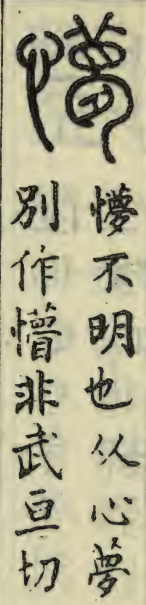 㒱
懜不明也从心夢
別作懵非武亘切